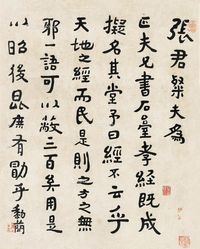 張君粲夫為
亡夫兄書石臺孝經既成
擬名其堂予曰經不云乎
天地之經而民是則之之無
邪一語可以蔽三百矣用是
以昭後昆庶有勖乎勳蘭